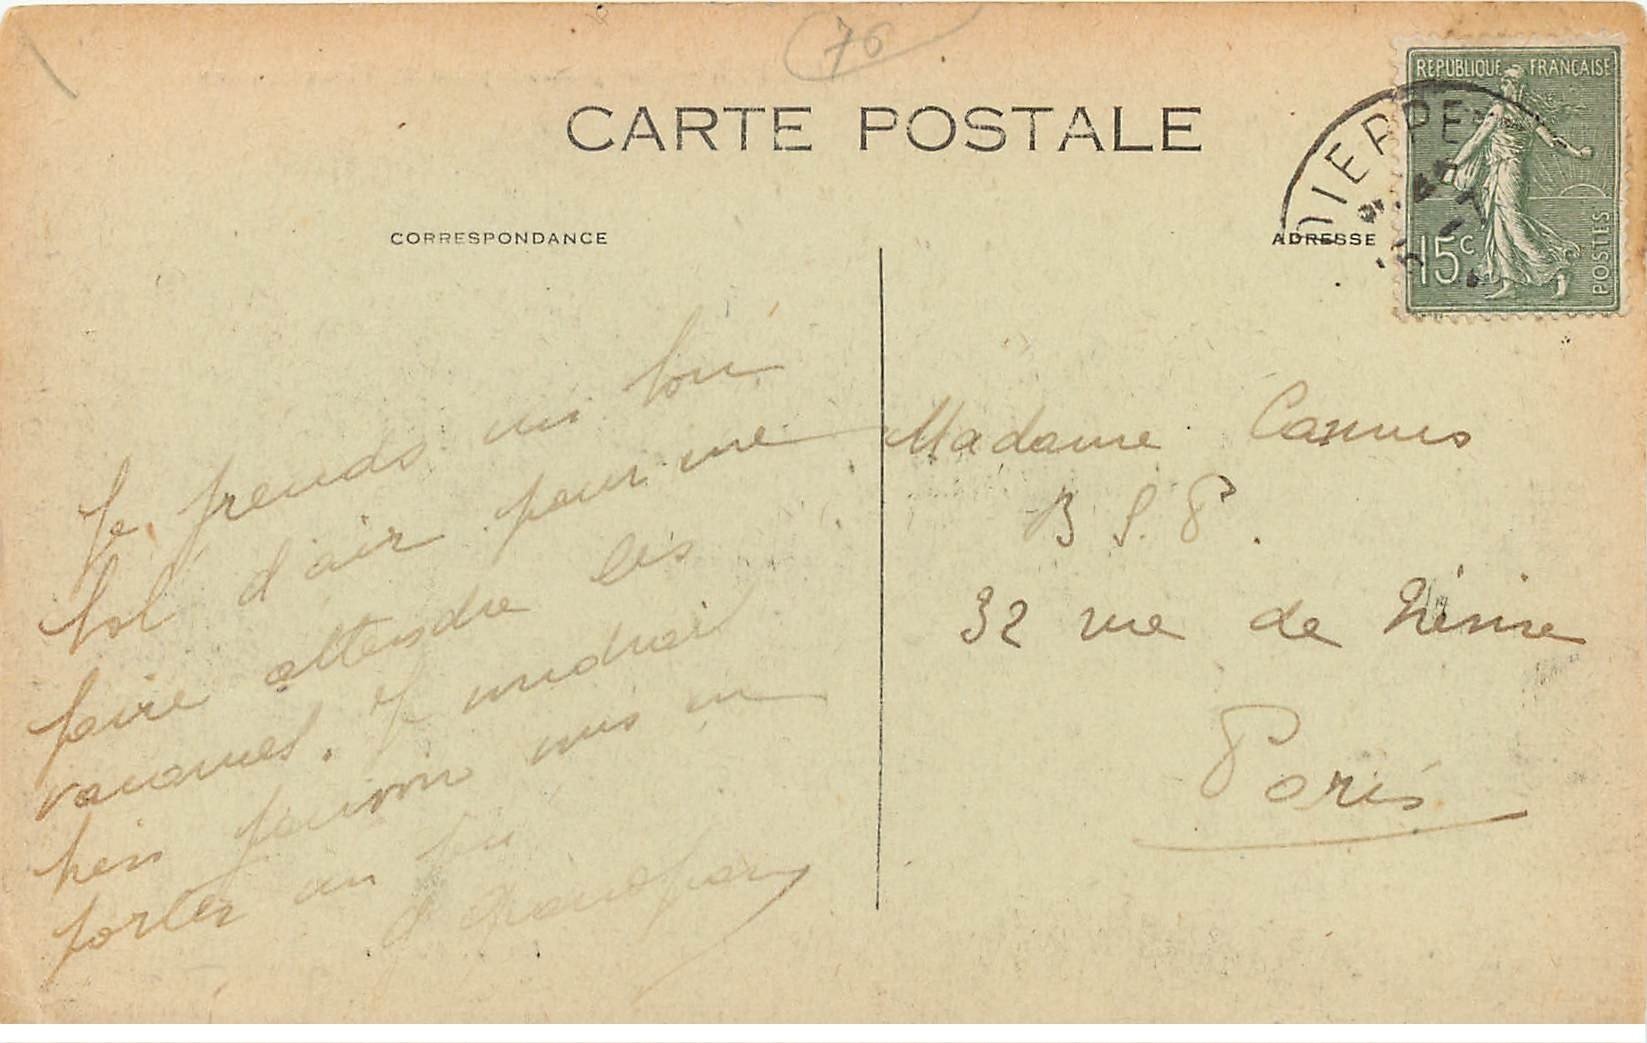 76
CARTE POSTALE
CORRESPONDANCE
ADRESSE
REPUBLIQUE FRANÇAISE
15c
POSTES
DIEPPE
Je prends un bon
bol d'air pour me
faire attendre les
vacances. Je voudrais
bien pouvoir vous en
porter un peu
Madame Camus
B S P.
32 rue de
Paris